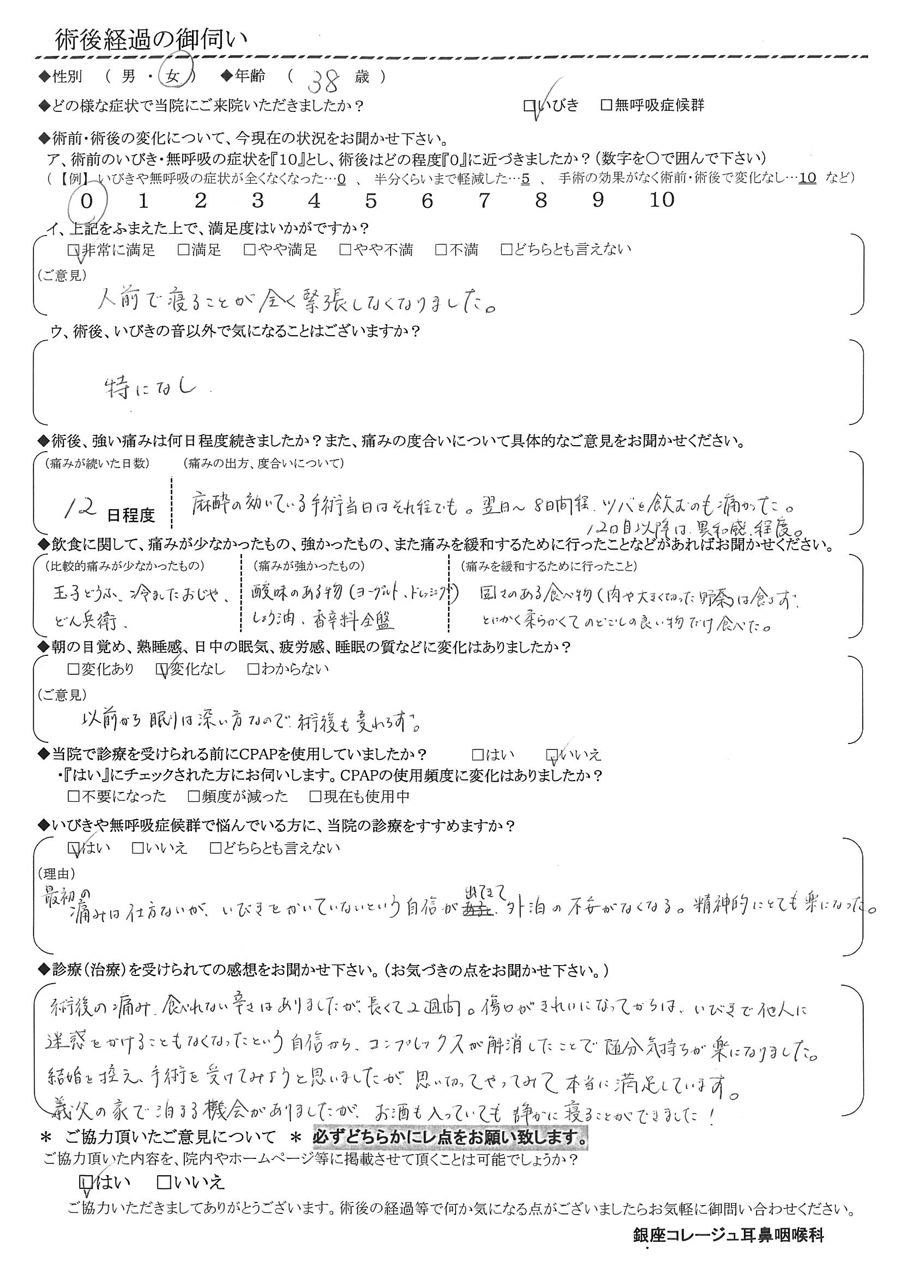 術後経過の御伺い
◆性別 （ 男 ・ 女 ） ◆年齢 （ 38 歳 ）
◆どの様な症状で当院にご来院いただきましたか？ □いびき □無呼吸症候群
◆術前・術後の変化について、今現在の状況をお聞かせ下さい。
ア、術前のいびき・無呼吸の症状を『10』とし、術後はどの程度『0』に近づきましたか？（数字を〇で囲んで下さい）
（ 【例】 いびきや無呼吸の症状が全くなくなった…0 、 半分くらいまで軽減した…5 、 手術の効果がなく術前・術後で変化なし…10 など）
0 1 2 3 4 5 6 7 8 9 10
イ、上記をふまえた上で、満足度はいかがですか？
□非常に満足 □満足 □やや満足 □やや不満 □不満 □どちらとも言えない
（ご意見）
人前で寝ることが全く緊張しなくなりました。
ウ、術後、いびきの音以外で気になることはございますか？
特になし
◆術後、強い痛みは何日程度続きましたか？また、痛みの度合いについて具体的なご意見をお聞かせください。
（痛みが続いた日数） （痛みの出方、度合いについて）
12 日程度 麻酔の効いている手術当日はそれ程でも。翌日〜8日間程、ツバを飲むのも痛かった。
12日目以降は、異和感程度。
◆飲食に関して、痛みが少なかったもの、強かったもの、また痛みを緩和するために行ったことなどがあればお聞かせください。
（比較的痛みが少なかったもの） （痛みが強かったもの） （痛みを緩和するために行ったこと）
玉子どうふ、冷ましたおじや、 酸味のある物（ヨーグルト、ドレッシング） 固さのある食べ物（肉や大きく切った野菜）は食さず、
どん兵衛、 しょう油、香辛料全盤 とにかく柔らかくてのどごしの良い物だけ食べた。
◆朝の目覚め、熟睡感、日中の眠気、疲労感、睡眠の質などに変化はありましたか？
□変化あり □変化なし □わからない
（ご意見）
以前から眠りは深い方なので、術後も変わらず。
◆当院で診療を受けられる前にCPAPを使用していましたか？ □はい □いいえ
・『はい』にチェックされた方にお伺いします。CPAPの使用頻度に変化はありましたか？
□不要になった □頻度が減った □現在も使用中
◆いびきや無呼吸症候群で悩んでいる方に、当院の診療をすすめますか？
□はい □いいえ □どちらとも言えない
（理由）
最初の痛みは仕方ないが、いびきをかいていないという自信が出てきて、外泊の不安がなくなる。精神的にとても楽になった。
◆診療（治療）を受けられての感想をお聞かせ下さい。（お気づきの点をお聞かせ下さい。）
術後の痛み、食べれない辛さはありましたが、長くて2週間。傷口がきれいになってからは、いびきで他人に
迷惑をかけることもなくなったという自信から、コンプレックスが解消したことで随分気持ちが楽になりました。
結婚を控え、手術を受けてみようと思いましたが、思い切ってやってみて本当に満足しています。
義父の家で泊まる機会がありましたが、お酒も入っていても静かに寝ることができました！
＊ ご協力頂いたご意見について ＊ 必ずどちらかにレ点をお願い致します。
ご協力頂いた内容を、院内やホームページ等に掲載させて頂くことは可能でしょうか？
□はい □いいえ
ご協力いただきましてありがとうございます。術後の経過等で何か気になる点がございましたらお気軽に御問い合わせください。
銀座コレージュ耳鼻咽喉科